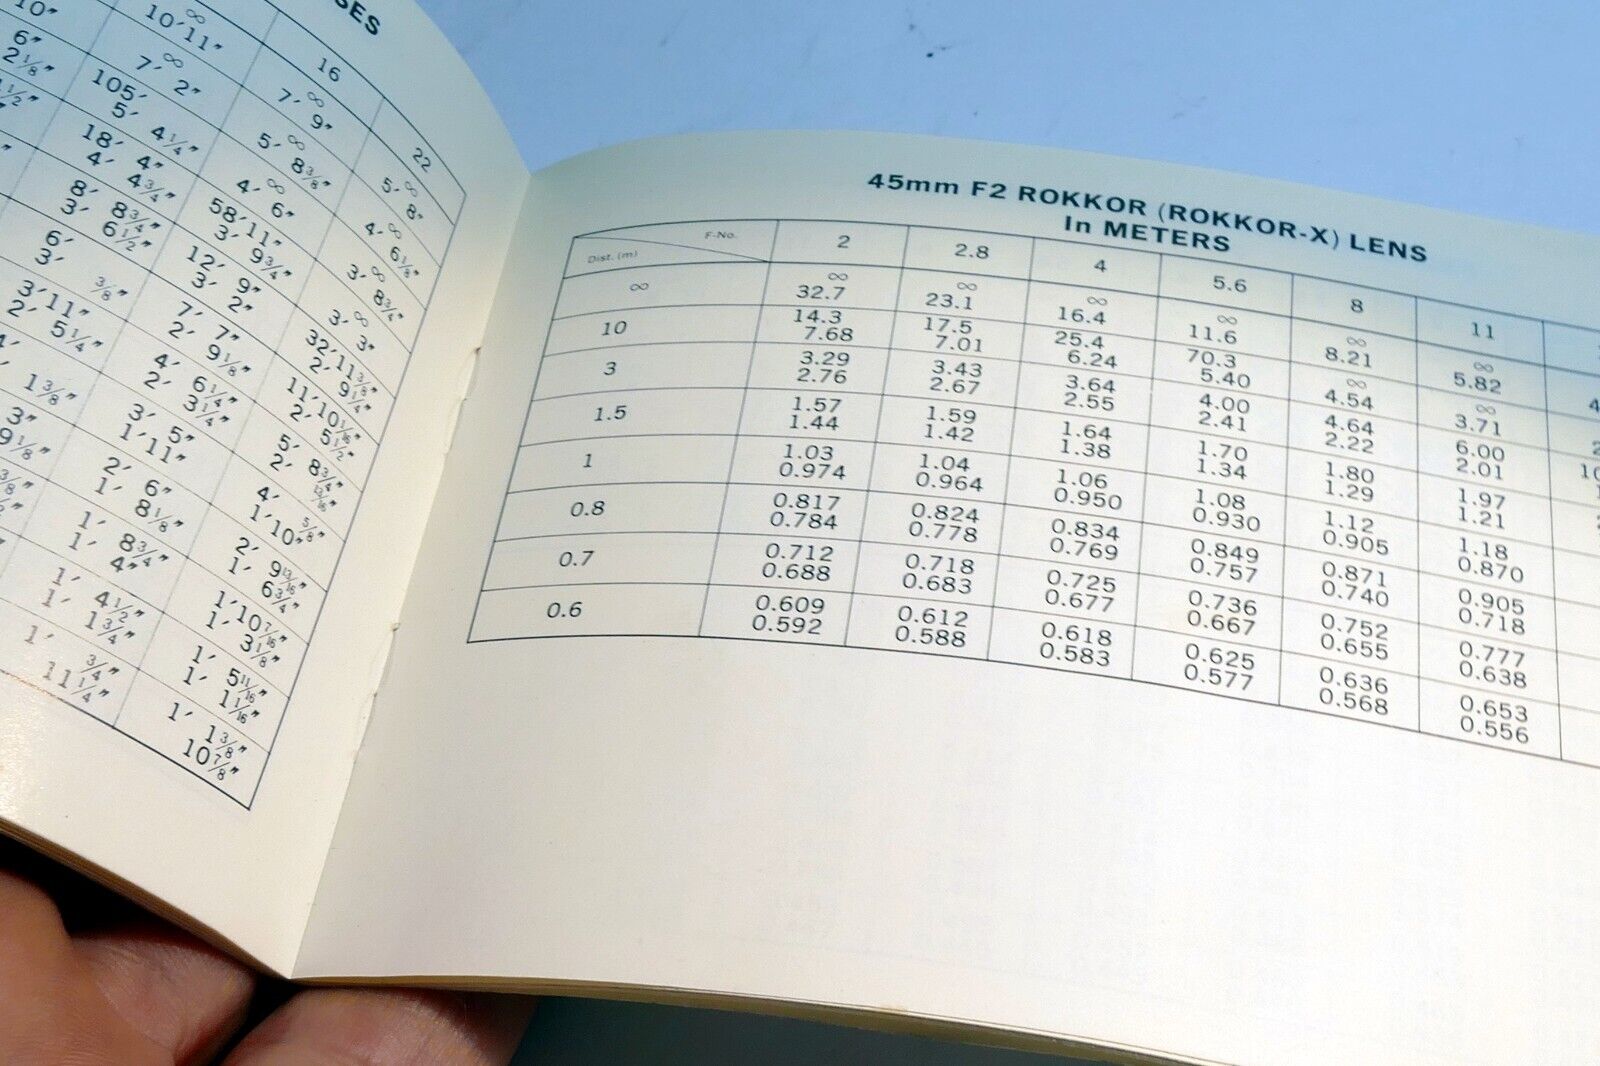 SES
16
22
10″
∞
10′11″
∞
7′ 9″
∞
5′ 8″
6″
∞
7′ 2″
∞
5′ 8 3/8″
∞
4′ 6 1/8″
2 1/8″
105′
5′ 4 1/4″
∞
4′ 6″
∞
3′ 8 3/4″
1 1/2″
18′ 4″
4′ 4 3/4″
58′11″
3′ 9 3/4″
∞
3′ 3″
8′ 8 3/4″
3′ 6 1/2″
12′ 9″
3′ 2″
32′11 3/8″
2′ 9 1/4″
6′
3′ 3/8″
7′ 7″
2′ 9 1/8″
11′10 1/16″
2′ 5 1/2″
3′11″
2′ 5 1/4″
4′ 6 1/4″
2′ 3 1/4″
5′ 8 3/4″
2′ 13/16″
1 3/8″
3′ 5″
1′11″
4′ 5/8″
1′10″
3″
9 1/8″
2′ 6″
1′ 8 1/8″
2′ 9 13/16″
1′ 6 3/4″
1′ 8 3/4″
1′ 4″
1′10 7/16″
1′ 3 1/8″
1′ 4 1/2″
1′ 1 3/4″
1′ 5 11/16″
1′ 1 1/16″
1′ 3/4″
11 1/4″
1′ 1 3/8″
10 7/8″
45mm F2 ROKKOR (ROKKOR-X) LENS
In METERS
F-No. 2 2.8 4 5.6 8 11
Dist. (m)
∞ ∞ ∞ ∞ ∞ ∞ ∞
32.7 23.1 16.4 11.6 8.21 5.82
10 14.3 17.5 25.4 70.3 ∞ ∞
7.68 7.01 6.24 5.40 4.54 3.71
3 3.29 3.43 3.64 4.00 4.64 6.00
2.76 2.67 2.55 2.41 2.22 2.01
1.5 1.57 1.59 1.64 1.70 1.80 1.97
1.44 1.42 1.38 1.34 1.29 1.21
1 1.03 1.04 1.06 1.08 1.12 1.18
0.974 0.964 0.950 0.930 0.905 0.870
0.8 0.817 0.824 0.834 0.849 0.871 0.905
0.784 0.778 0.769 0.757 0.740 0.718
0.7 0.712 0.718 0.725 0.736 0.752 0.777
0.688 0.683 0.677 0.667 0.655 0.638
0.6 0.609 0.612 0.618 0.625 0.636 0.653
0.592 0.588 0.583 0.577 0.568 0.556